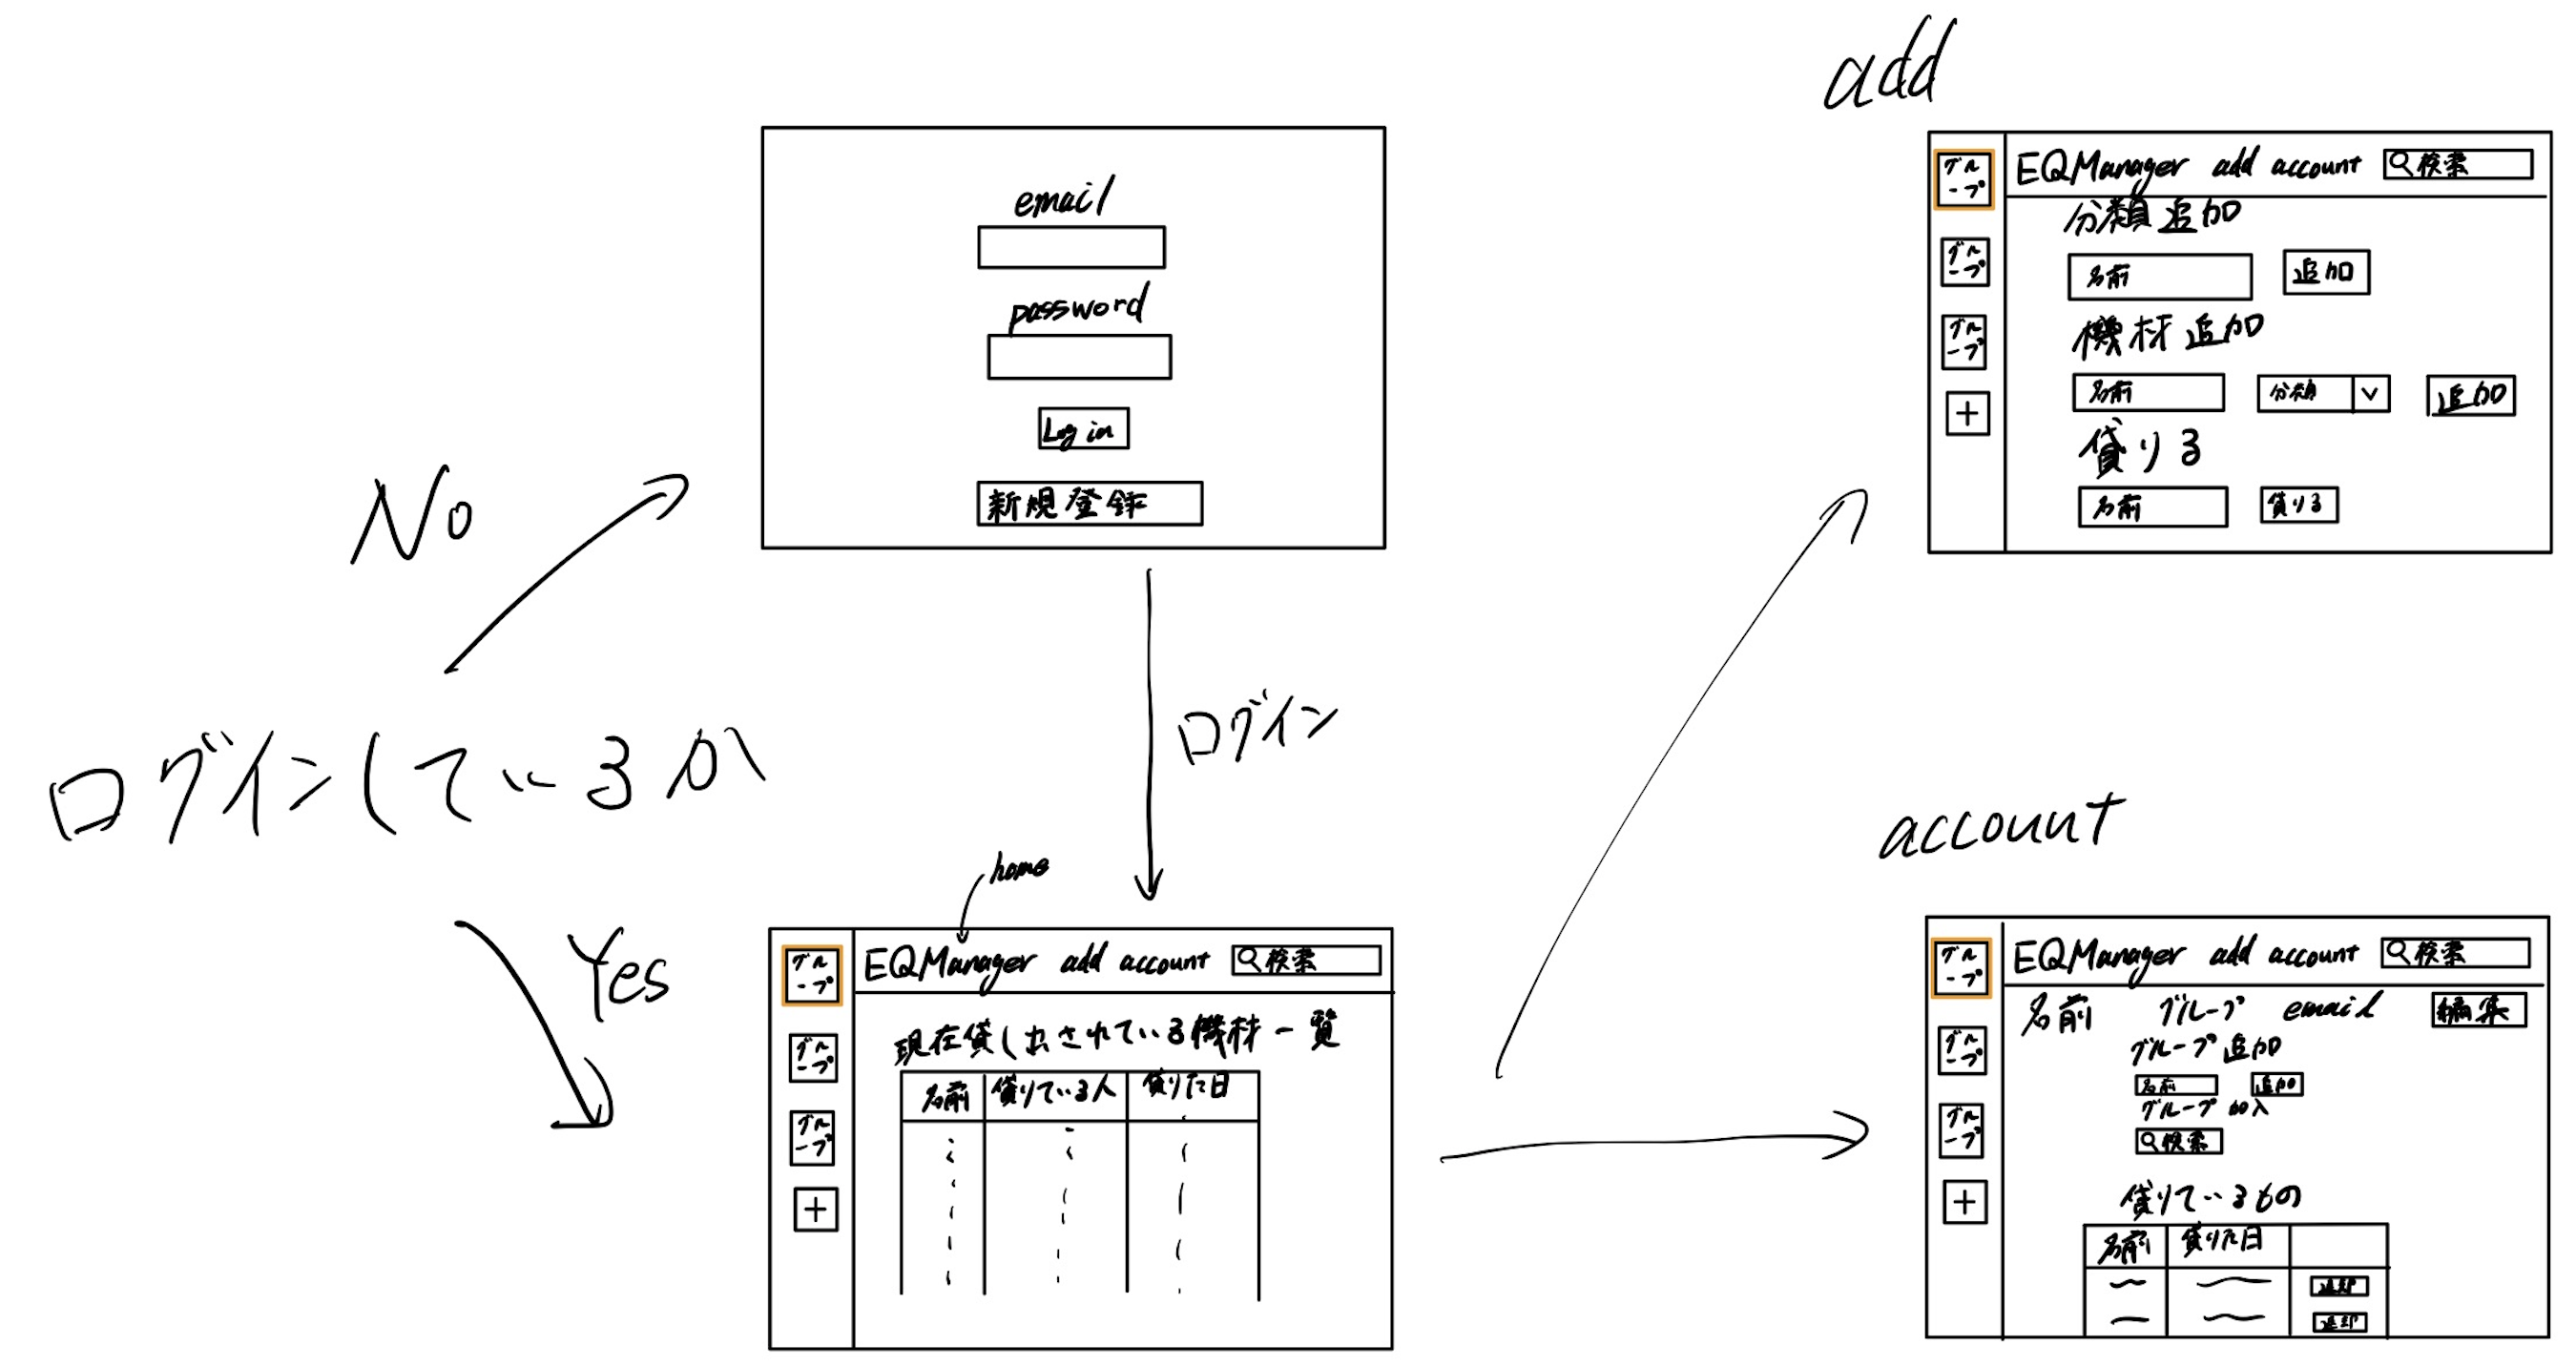 ログインしているか
No
Yes
email
password
Log in
新規登録
ログイン
home
グループ
グループ
グループ
+
EQManager add account 検索
現在貸し出されている機材一覧
名前 借りている人 借りた日
add
グループ
グループ
グループ
+
EQManager add account 検索
分類追加
名前 追加
機材追加
名前 分類 追加
借りる
名前 借りる
account
グループ
グループ
グループ
+
EQManager add account 検索
名前 グループ email 編集
グループ追加
名前 追加
グループ加入
検索
借りているもの
名前 借りた日